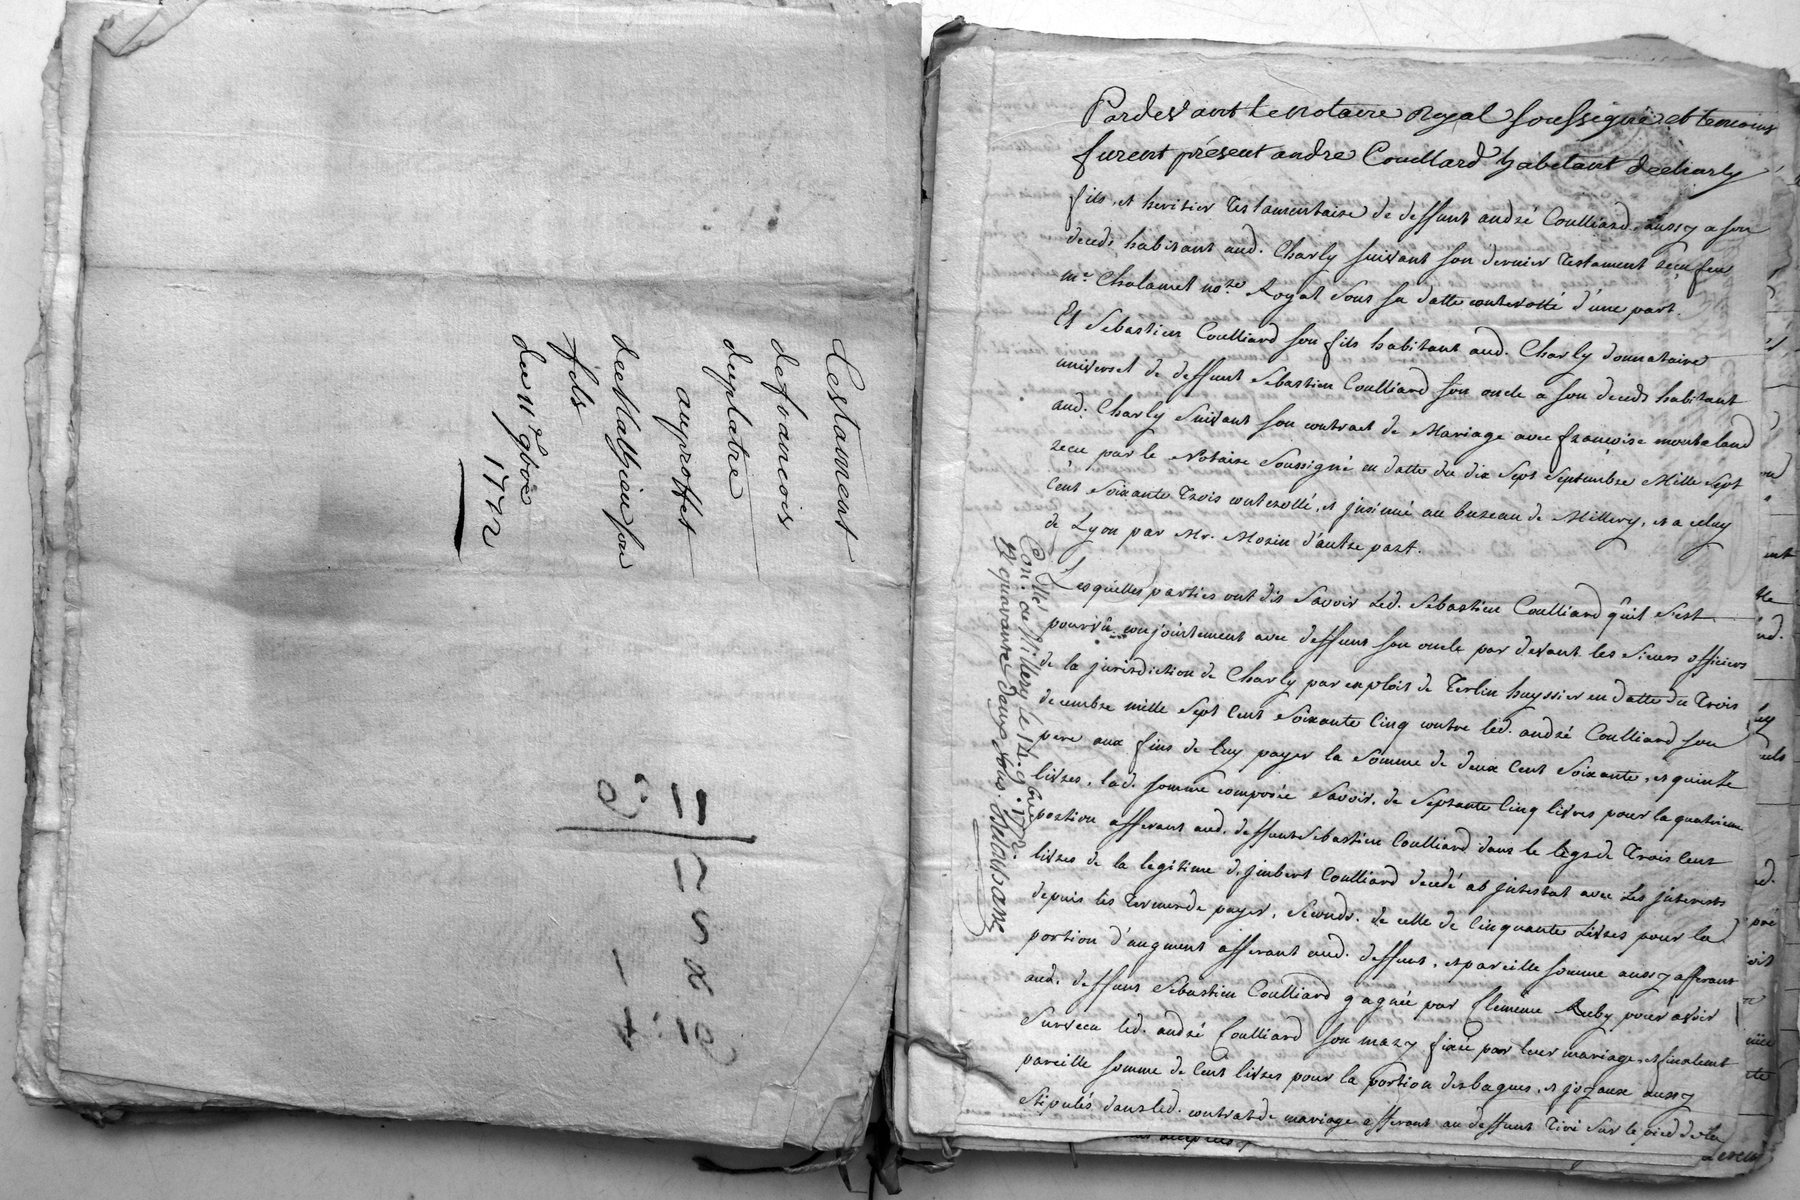 Testament
de francois
duplatre
auproffit
de Mathieu son
fils
du 11e 9bre
1772
Pardevant Le notaire Royal soussigné et temoins
furent présent andre Coulliard habitant decharly
fils, et heritier Testamentaire de deffunt andré Coulliard, aussy a son
deceds habitant aud. Charly suivant son dernier testament reçu feu
me. Chalamel nore. Royal sous sa datte controllé d'une part.
Et Sebastien Coulliard son fils habitant aud. Charly donnataire
universel de deffunt Sebastien Coulliard son oncle a son deceds habitant
aud. Charly suivant son contract de Mariage avec francoise montaland
recu par le Notaire soussigné en datte du dix sept septembre Mille sept
Cent soixante Trois controllé, et jnsinué au bureau de Millery, et a celuy
de Lyon par Mr. Morin d'autre part.
Lesquelles parties ont dit savoir Led. Sebastien Coulliard qu'il s'est
pourvû conjointement avec deffunt son oncle par devant les sieurs officiers
de la jurisdiction de Charly par exploit de Terlin huyssier en datte du Trois
decembre mille sept cent soixante Cinq contre led. andré Coulliard son
pere aux fins de luy payer la somme de deux cent soixante, et quinze
livres, lad. somme composée savoir, de septante Cinq livres pour la quatrieme
portion afferant aud. deffunt Sebastien Coulliard dans le legs de Trois Cent
livres de la legitime d'jmbert Coulliard decedé ab jntestat avec Les jnterests
depuis les termes de payer, seconds. de celle de Cinquante Livres pour la
portion d'augment afferant aud. deffunt, et pareille somme aussy afferant
aud. deffunt Sebastien Coulliard gagnée par Clemence Ruby pour avoir
survecu led. andré Coulliard son mary fixée par leur mariage, et finalemt
pareille somme de Cent livres pour la portion des bagues, et joyaux aussy
stipulés dans led. contrat de mariage afferant au deffunt Tiré sur le pied de la
Con.llé
Con. de Millery le 17. 9bre 1772.
R quarante deux sous.